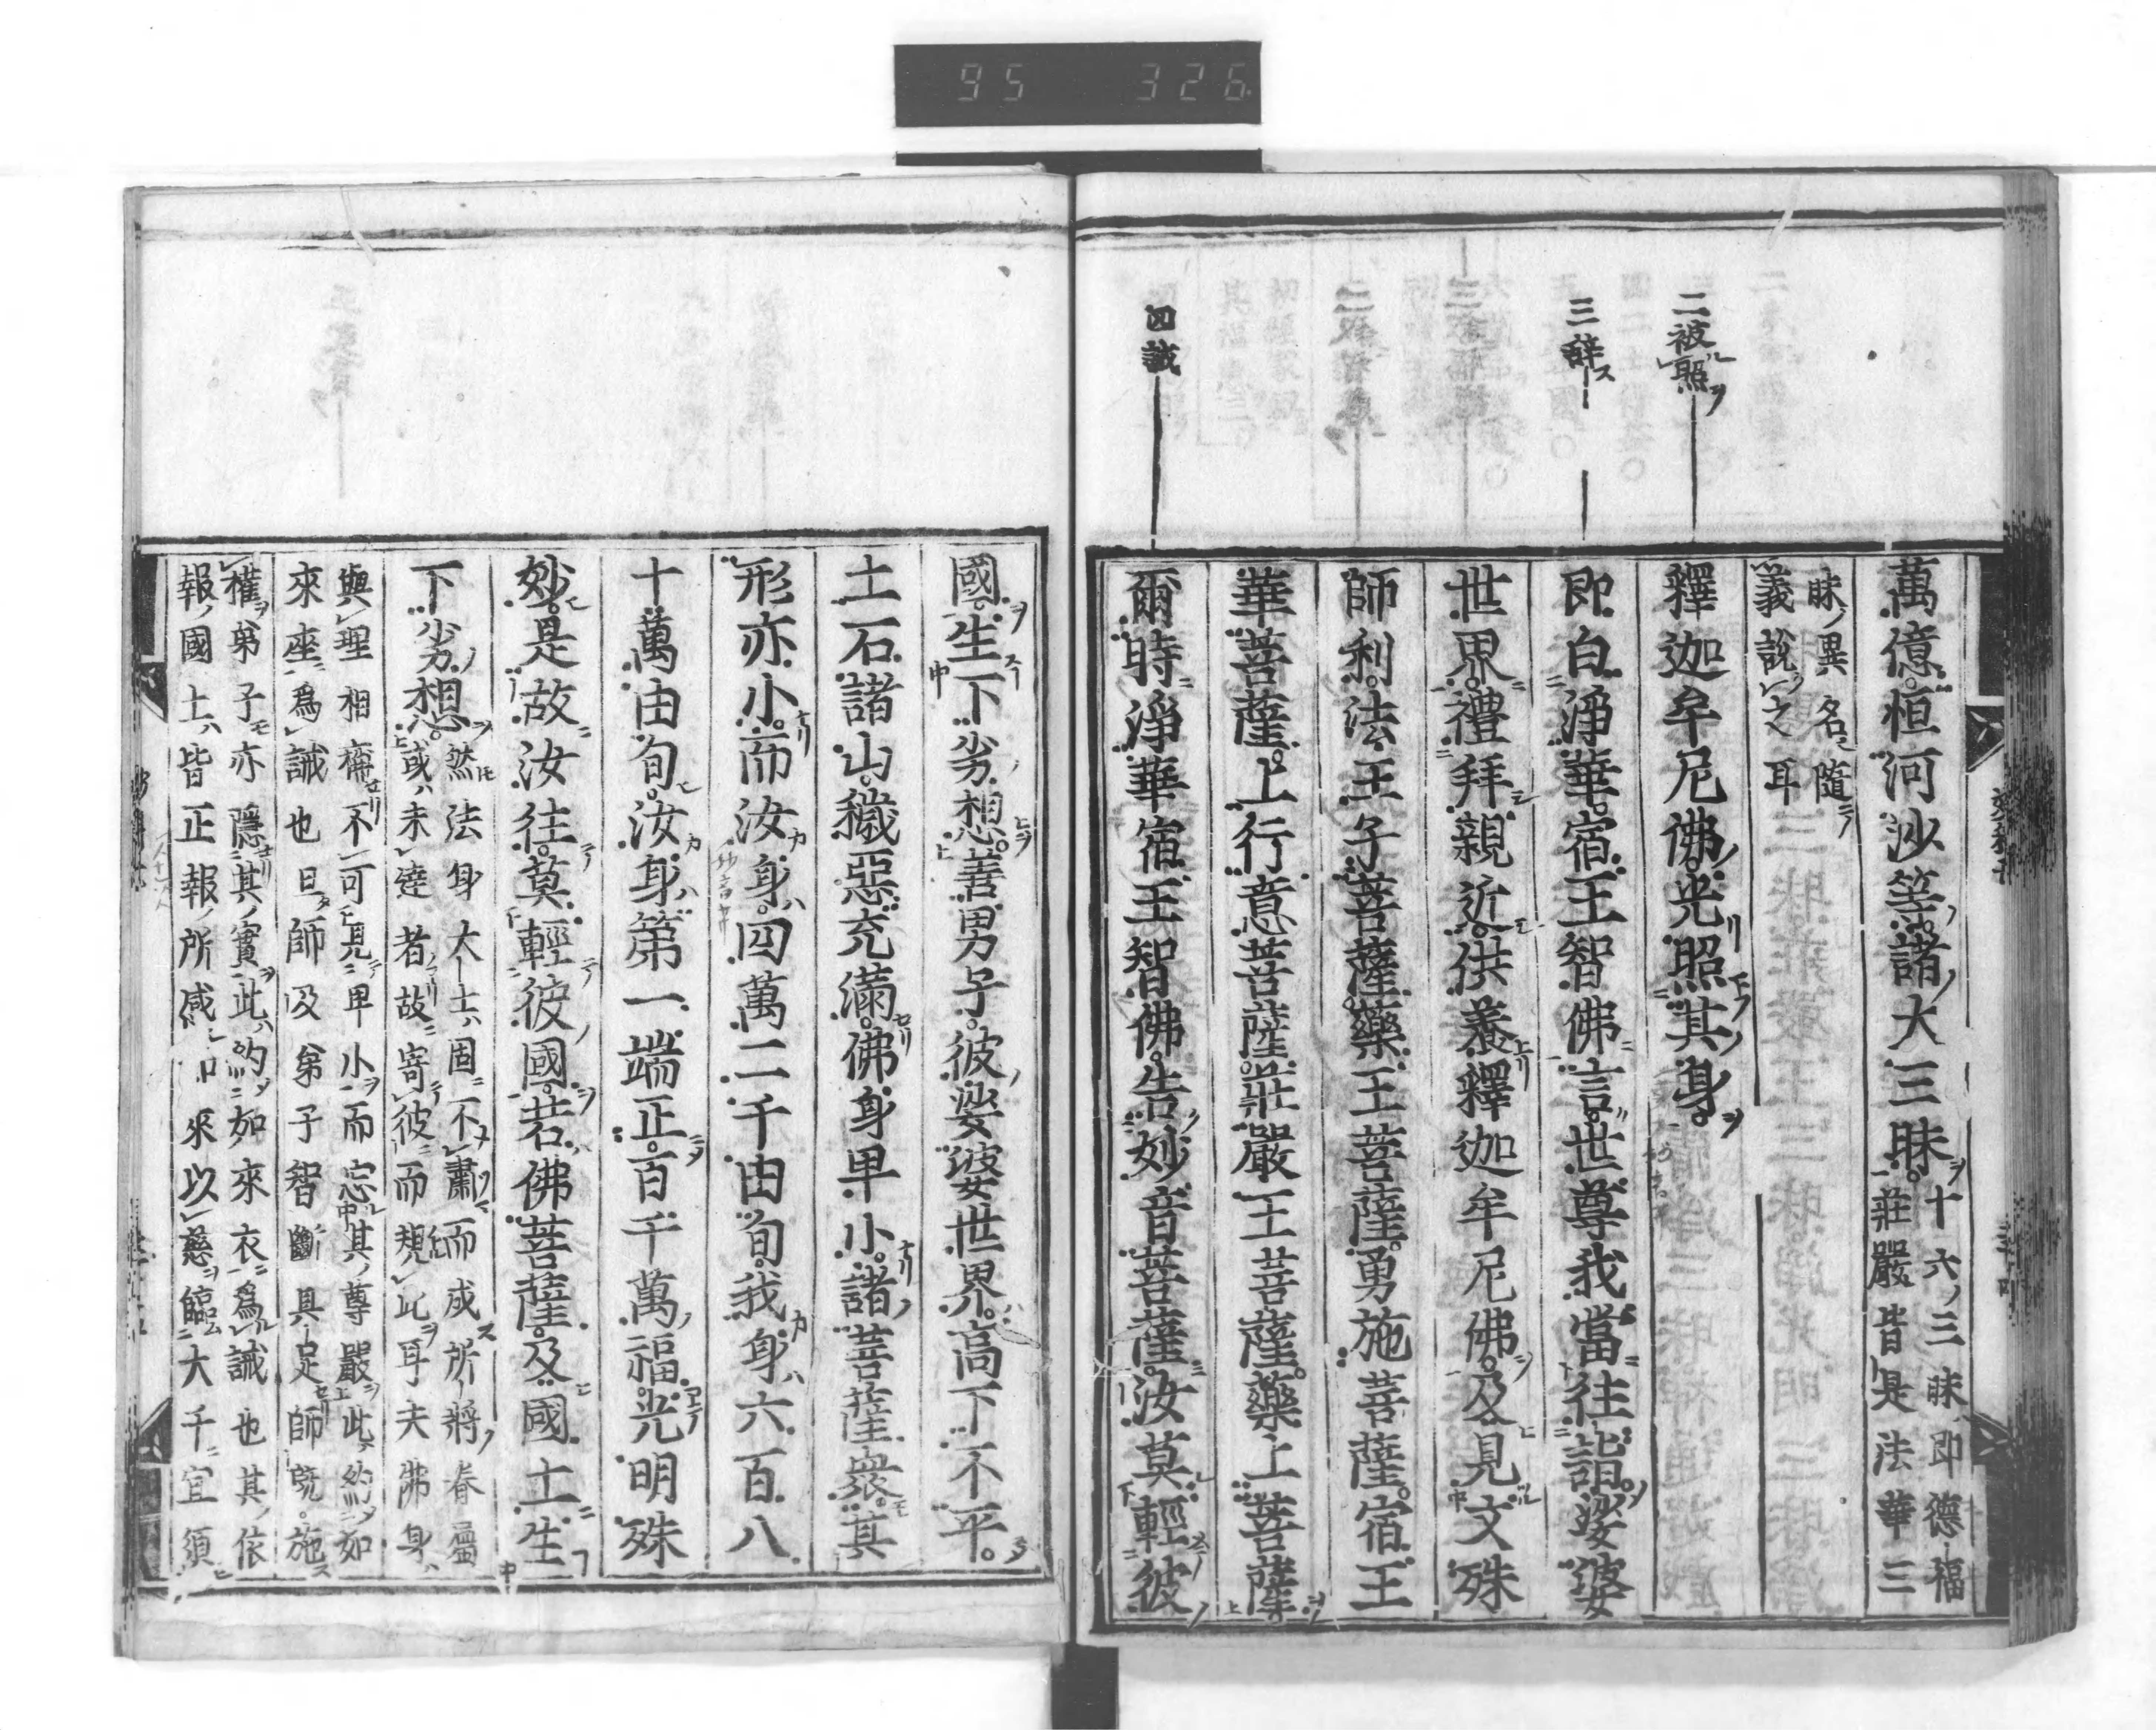 95 326
二被照
三辞
四誡
萬億恒河沙等諸大三昧
十六三昧即德福
莊嚴皆是法華三
昧異名隨
義說之耳
釋迦牟尼佛光照其身
即白淨華宿王智佛言世尊我當往詣娑婆
世界禮拜親近供養釋迦牟尼佛及見文殊
師利法王子菩薩藥王菩薩勇施菩薩宿王
華菩薩上行意菩薩莊嚴王菩薩藥上菩薩
爾時淨華宿王智佛告妙音菩薩汝莫輕彼
國生下劣想善男子彼娑婆世界高下不平
土石諸山穢惡充滿佛身卑小諸菩薩衆其
形亦小而汝身四萬二千由旬我身六百八
十萬由旬汝身第一端正百千萬福光明殊
妙是故汝往莫輕彼國若佛菩薩及國土生
下劣想
然法身大士固不肅而成所將眷屬
或未達者故寄彼而規此耳夫佛身
與理相稱不可見卑小而忘其尊嚴此約如
來座爲誡也且師及弟子智斷具足師既施
權弟子亦隱其實此約如來衣爲誡也其依
報國土皆正報所感 來以慈臨大千宜須